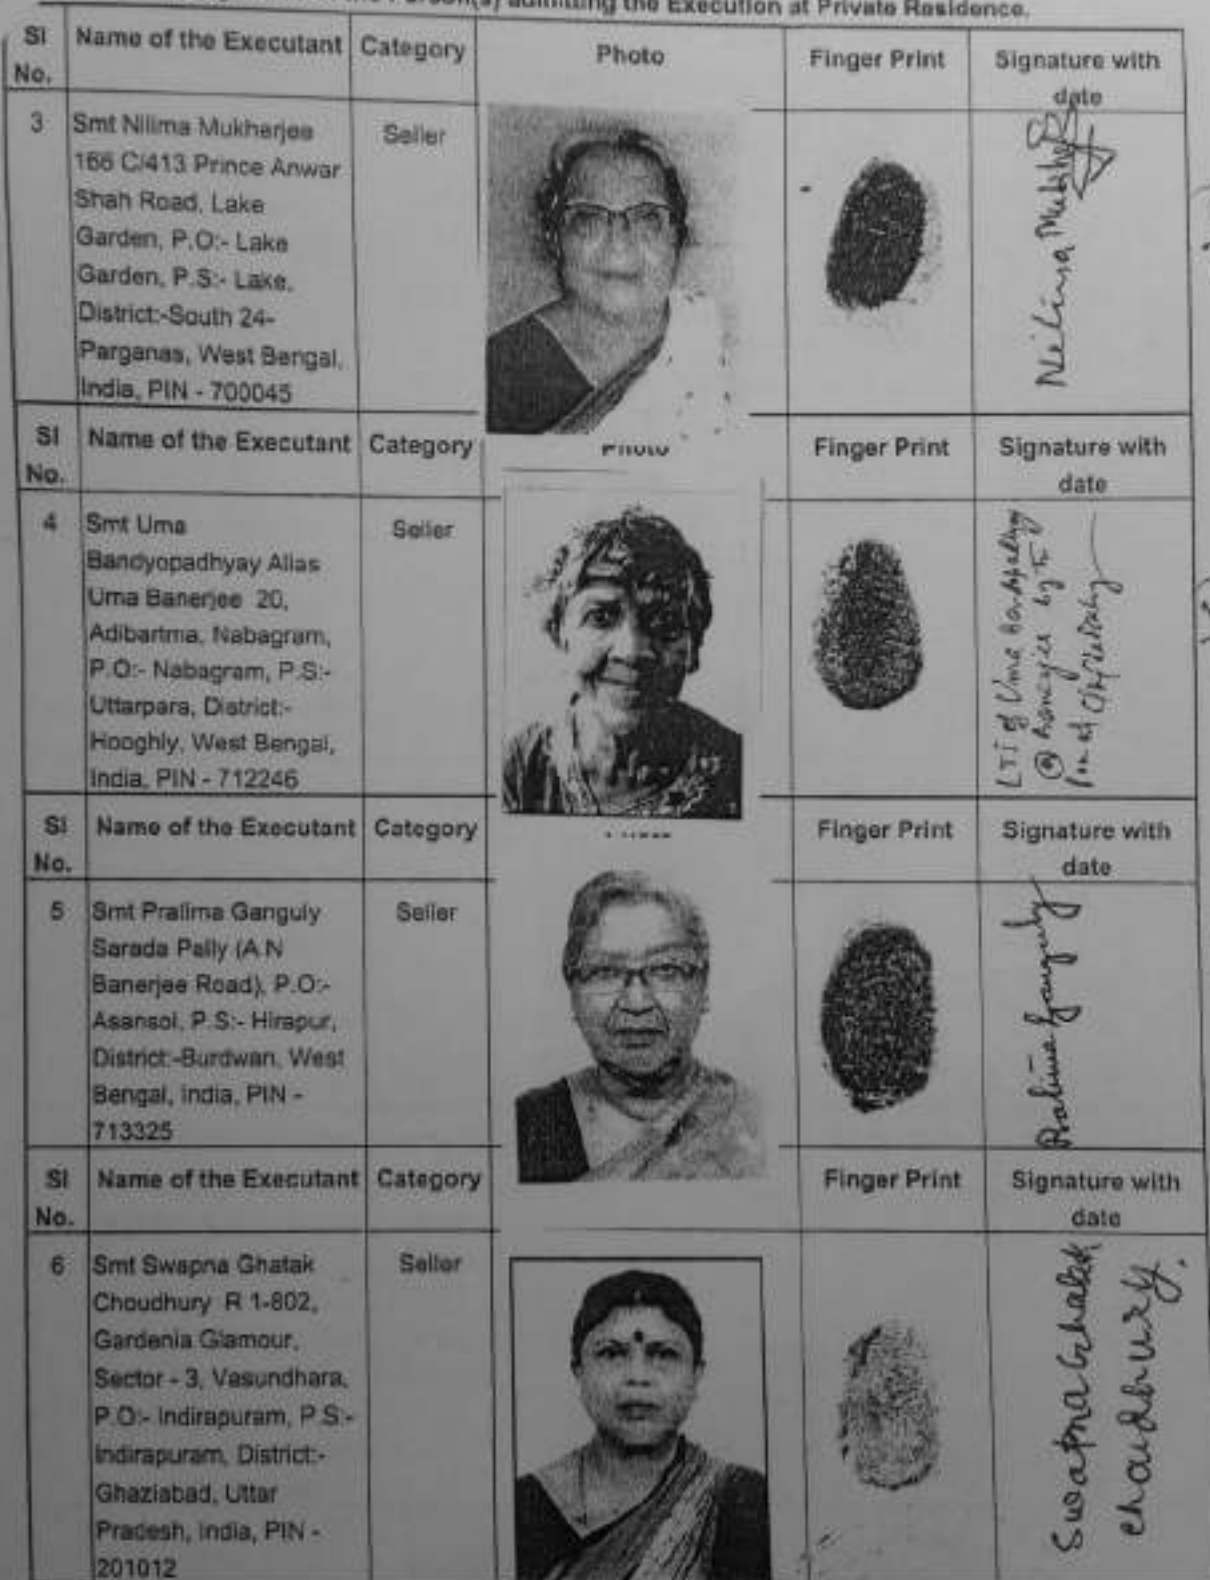 the Person(s) admitting the Execution at Private Residence.
Sl No. Name of the Executant Category Photo Finger Print Signature with date
3 Smt Nilima Mukherjee Seller
166 C/413 Prince Anwar
Shah Road, Lake
Garden, P.O:- Lake
Garden, P.S:- Lake,
District:-South 24-
Parganas, West Bengal,
India, PIN - 700045
Neilima Mukherjee
Sl No. Name of the Executant Category Photo Finger Print Signature with date
4 Smt Uma Seller
Bandyopadhyay Alias
Uma Banerjee 20,
Adibartma, Nabagram,
P.O:- Nabagram, P.S:-
Uttarpara, District:-
Hooghly, West Bengal,
India, PIN - 712246
LTI of Uma
@ Banerjee by the
Pen of
Sl No. Name of the Executant Category Finger Print Signature with date
5 Smt Pralima Ganguly Seller
Sarada Pally (A.N
Banerjee Road), P.O:-
Asansol, P.S:- Hirapur,
District:-Burdwan, West
Bengal, India, PIN -
713325
Pralima Ganguly
Sl No. Name of the Executant Category Finger Print Signature with date
6 Smt Swapna Ghatak Seller
Choudhury R 1-802,
Gardenia Glamour,
Sector - 3, Vasundhara,
P.O:- Indirapuram, P.S:-
Indirapuram, District:-
Ghaziabad, Uttar
Pradesh, India, PIN -
201012
Swapna Ghatak
Chaudhury.